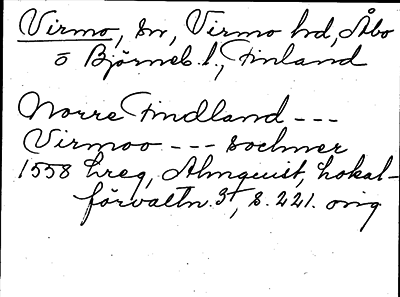 Virmo, sn, Virmo hd, Åbo
o Björneb. l., Finland
Norre Findland ---
Virmoo --- sochner
1558 hreg, Almquist, Lokal-
förvaltn. 3, s. 221. orig